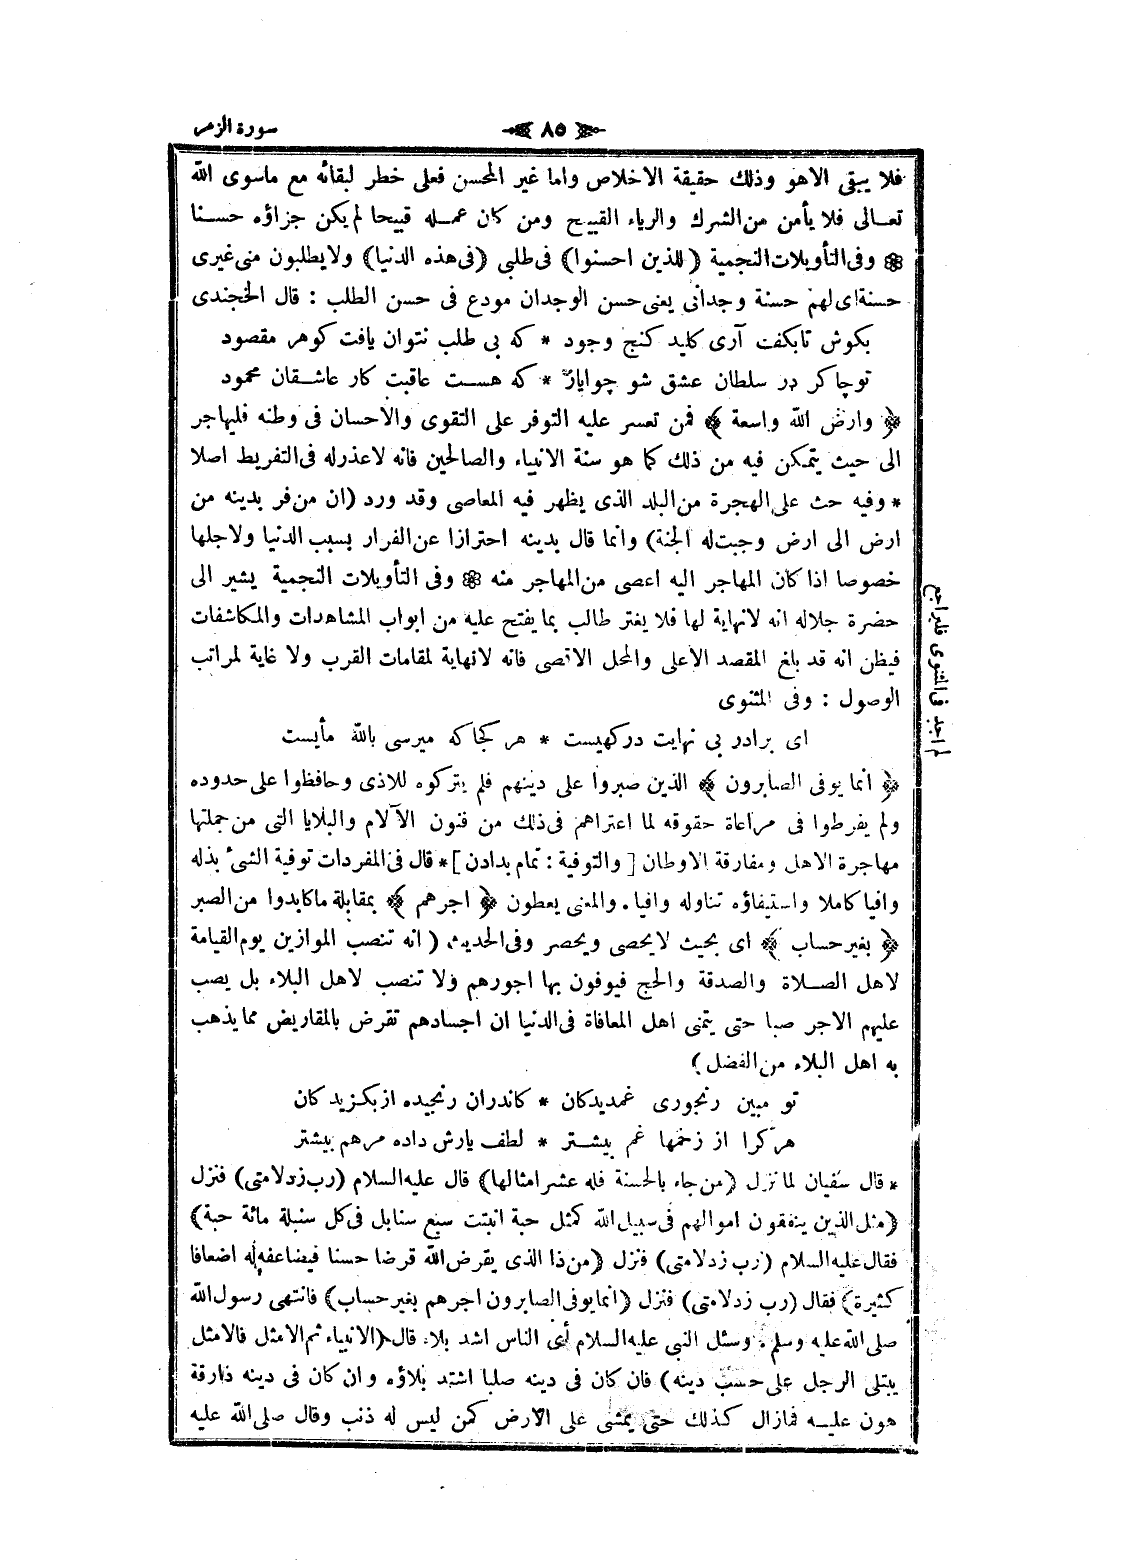 سورة الزمر
٨٥
فلا يبقى الاهو وذلك حقيقة الاخلاص واما غير المحسن فعلى خطر لبقائه مع ماسوى الله
تعالى فلا يأمن من الشرك والرياء القبيح ومن كان عمله قبيحا لم يكن جزاؤه حسنا
❁ وفى التأويلات النجمية (للذين احسنوا) فى طلبى (فى هذه الدنيا) ولا يطلبون منى غيرى
حسنة اى لهم حسنة وجدانى يعنى حسن الوجدان مودع فى حسن الطلب : قال الخجندى
بكوش تابكفت آرى كليد كنج وجود * كه بى طلب نتوان يافت كوهر مقصود
توچاكر در سلطان عشق شو چواياز * كه هست عاقبت كار عاشقان محمود
﴿ وارض الله واسعة ﴾ فمن تعسر عليه التوفر على التقوى والاحسان فى وطنه فليهاجر
الى حيث يتمكن فيه من ذلك كما هو سنة الانبياء والصالحين فانه لاعذرله فى التفريط اصلا
* وفيه حث على الهجرة من البلد الذى يظهر فيه المعاصى وقد ورد (ان من فر بدينه من
ارض الى ارض وجبت له الجنة) وانما قال بدينه احترازا عن الفرار بسبب الدنيا ولاجلها
خصوصا اذا كان المهاجر اليه اعصى من المهاجر منه ❁ وفى التأويلات النجمية يشير الى
حضرة جلاله انه لانهاية لها فلا يغتر طالب بما يفتح عليه من ابواب المشاهدات والمكاشفات
فيظن انه قد بلغ المقصد الأعلى والمحل الاقصى فانه لانهاية لمقامات القرب ولا غاية لمراتب
الوصول : وفى المثنوى
لم اجد فى المثنوى فليراجع
اى برادر بى نهايت دركهيست * هر كجا كه ميرسى بالله مأيست
﴿ انما يوفى الصابرون ﴾ الذين صبروا على دينهم فلم يتركوه للاذى وحافظوا على حدوده
ولم يفرطوا فى مراعاة حقوقه لما اعتراهم فى ذلك من فنون الآلام والبلايا التى من جملتها
مهاجرة الاهل ومفارقة الاوطان [ والتوفية : تمام بدادن ] * قال فى المفردات توفية الشئ بذله
وافيا كاملا واستيفاؤه تناوله وافيا . والمعنى يعطون ﴿ اجرهم ﴾ بمقابلة ماكابدوا من الصبر
﴿ بغير حساب ﴾ اى بحيث لا يحصى ويحصر وفى الحديث ( انه تنصب الموازين يوم القيامة
لاهل الصلاة والصدقة والحج فيوفون بها اجورهم ولا تنصب لاهل البلاء بل يصب
عليهم الاجر صبا حتى يتمنى اهل المعافاة فى الدنيا ان اجسادهم تقرض بالمقاريض مما يذهب
به اهل البلاء من الفضل )
تو مبين رنجورى غمديدكان * كاندران رنجيده از بكزيدكان
هر كرا از زخمها غم بيشتر * لطف يارش داده مرهم بيشتر
* قال سفيان لما نزل (من جاء بالحسنة فله عشر امثالها) قال عليه السلام (رب زد لامتى) فنزل
(مثل الذين ينفقون اموالهم فى سبيل الله كمثل حبة انبتت سبع سنابل فى كل سنبلة مائة حبة)
فقال عليه السلام (رب زد لامتى) فنزل (من ذا الذى يقرض الله قرضا حسنا فيضاعفه له اضعافا
كثيرة) فقال (رب زد لامتى) فنزل (انما يوفى الصابرون اجرهم بغير حساب) فانتهى رسول الله
صلى الله عليه وسلم . وسئل النبى عليه السلام أى الناس اشد بلاء قال (الانبياء ثم الامثل فالامثل
يبتلى الرجل على حسب دينه) فان كان فى دينه صلبا اشتد بلاؤه وان كان فى دينه ذارقة
هون عليه فمازال كذلك حتى يمشى على الارض كمن ليس له ذنب وقال صلى الله عليه